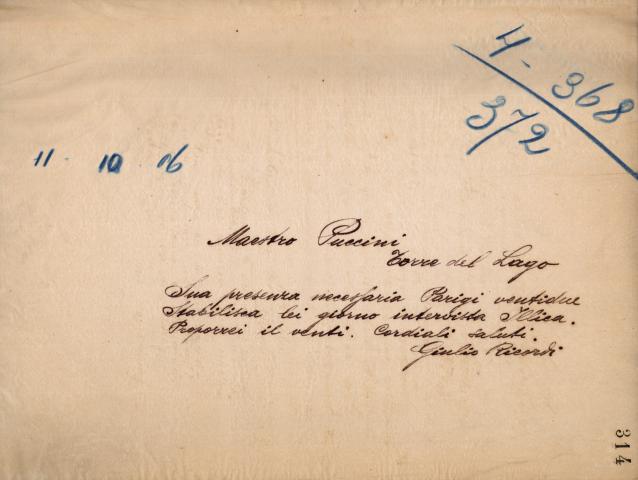 4-368
372
11 - 10 06
Maestro Puccini
Torre del Lago
Sua presenza necessaria Parigi ventidue
Stabilisca lei giorno intervista Illica.
Proporrei il venti. Cordiali saluti.
Giulio Ricordi
314